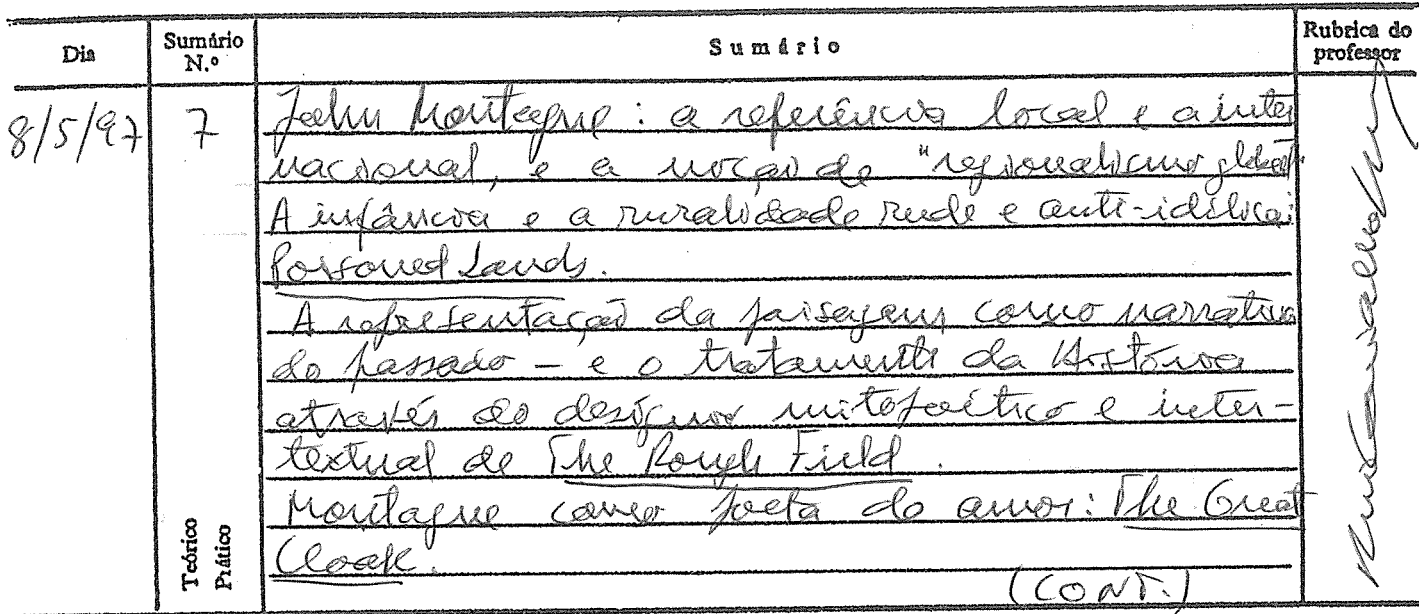 Dia Sumário N.º Sumário Rubrica do professor
8/5/97 7 John Montague: a referência local e a inter
nacional, e a noção de "regionalismo global".
A infância e a ruralidade rude e anti-idílica:
Poisoned Lands.
A representação da paisagem como narrativa
do passado – e o tratamento da História
através do desígnio mitopoético e inter-
textual de The Rough Field.
Montague como poeta do amor: The Great
Cloak.
(CONT.)
Teórico
Prático